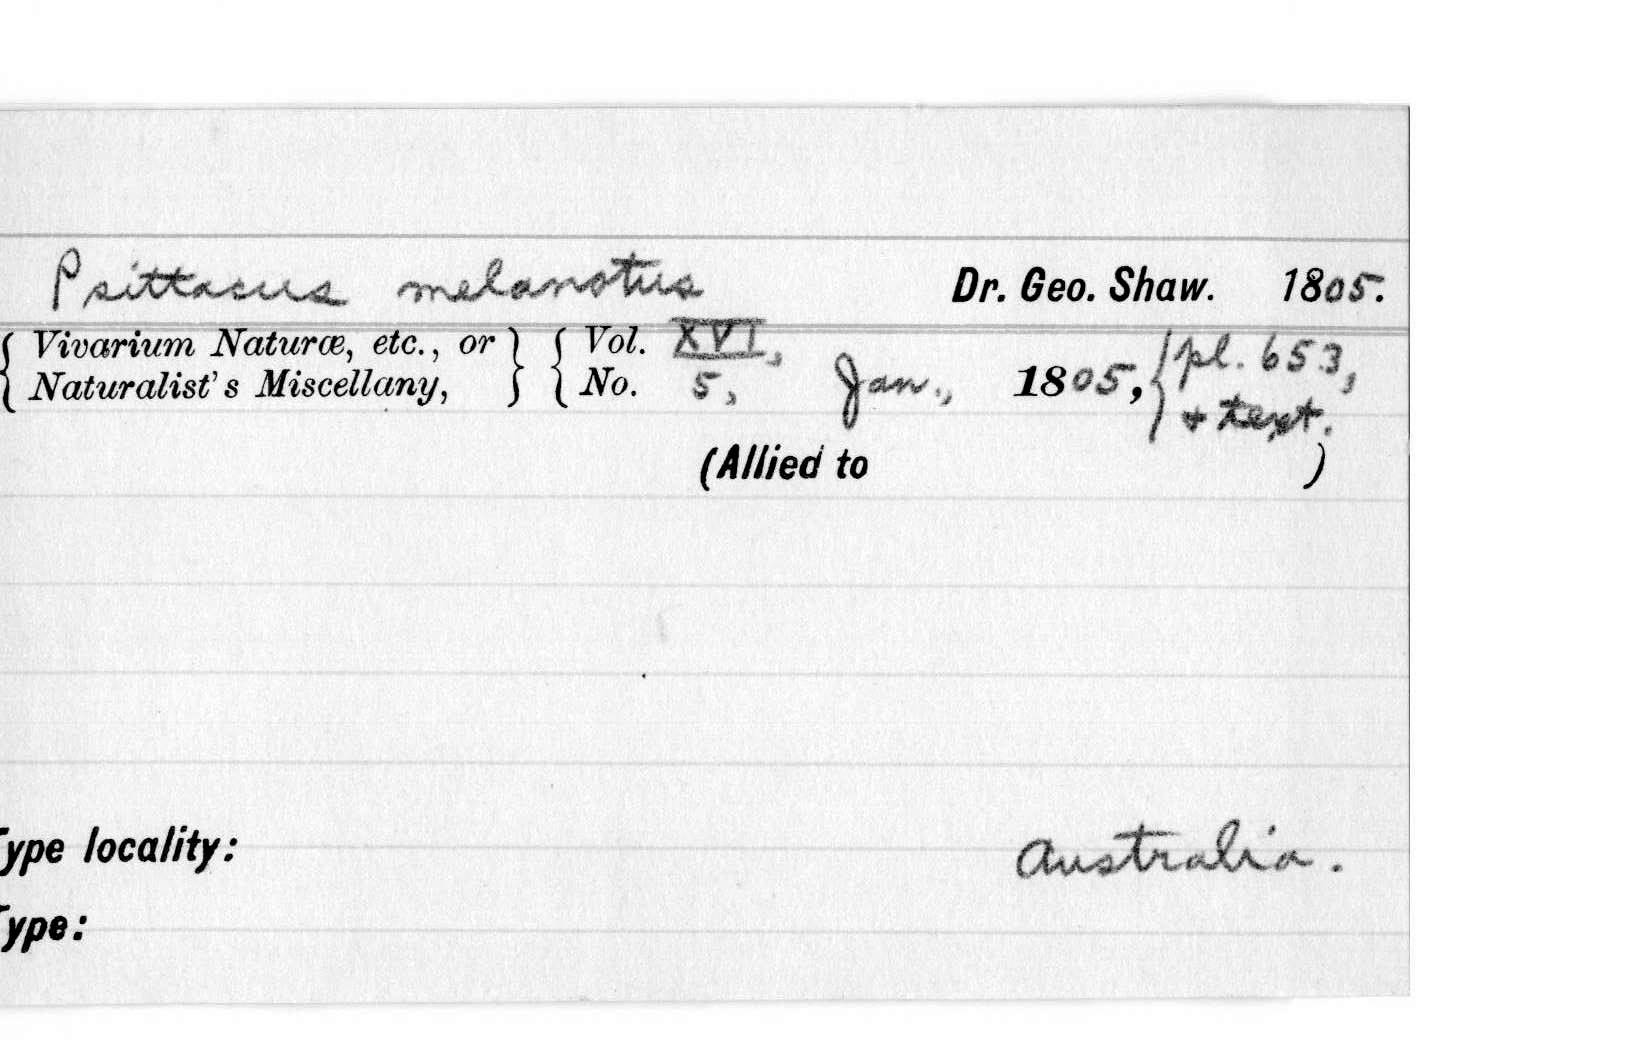 Psittacus melanotus Dr. Geo. Shaw. 1805.
{ Vivarium Naturæ, etc., or } { Vol. XVI, pl. 653,
{ Naturalist's Miscellany, } { No. 5, Jan., 1805, { + text.
(Allied to )
Type locality: Australia.
Type: